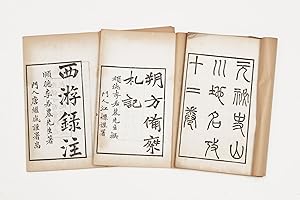 元祕史山
川地名攷
十二卷
朔方備乘
札記
順德李若農先生撰
門人江標謹署
西游錄注
順德李若農先生著